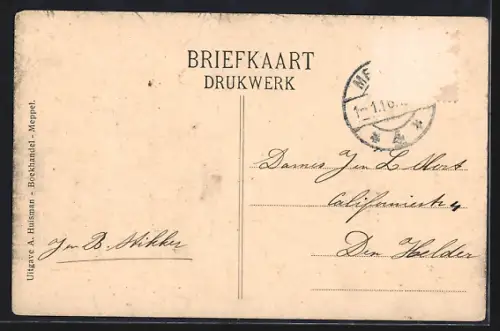 BRIEFKAART
DRUKWERK
ME
1-1.16
4
Dames J en L Mors
Californiestr 4
Den Helder
J en B. Stikker
Uitgave A. Huisman - Boekhandel - Meppel.